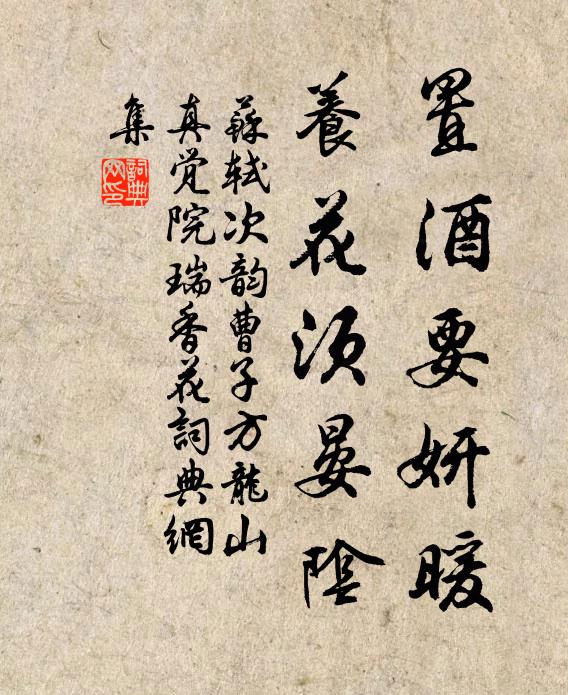 置酒要妍暖
養花須晏陰
蘇軾次韵曹子方龍山
真觉院瑞香花詞典網
集
詞典
网印